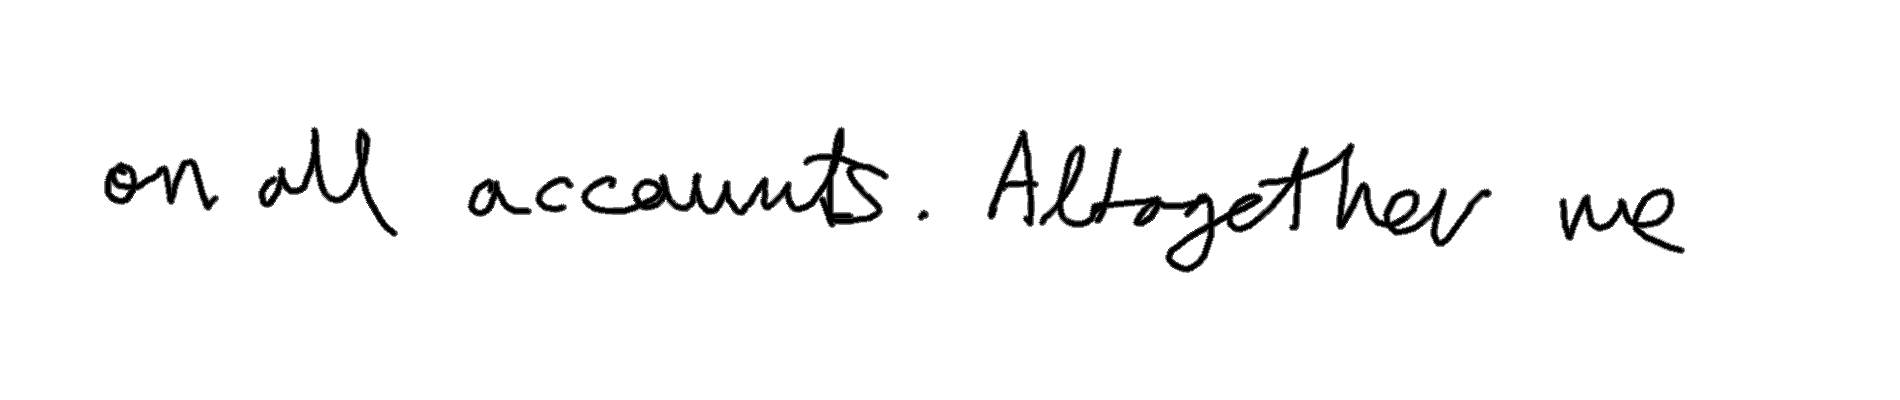 on all accounts. Altogether we